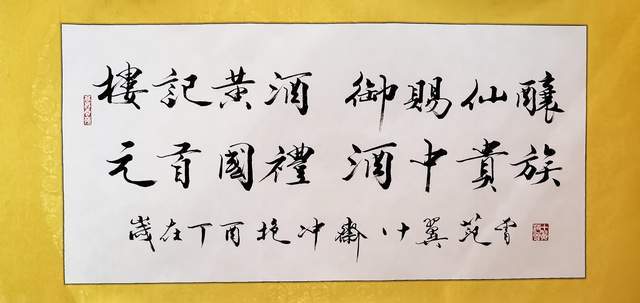 樓記黄酒 御賜仙釀
元首國禮 酒中貴族
歲在丁酉抱冲齋十翼范曾